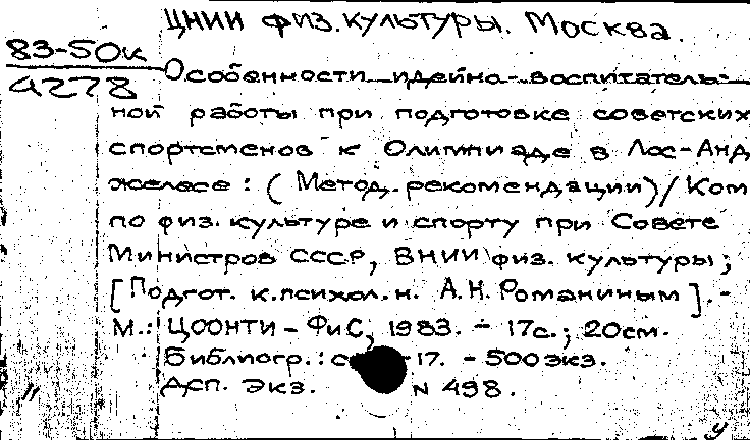 ЦНИИ физ. культуры. Москва.
83-50к
4278
Особенности идейно-воспитатель-
ной работы при подготовке советских
спортсменов к Олимпиаде в Лос-Анд
желесе: (Метод. рекомендации) / Ком
по физ. культуре и спорту при Совете
Министров СССР, ВНИИ физ. культуры;
[Подгот. к.психол.н. А.Н. Романиным]. -
М.: ЦООНТИ - ФиС, 1983. - 17с.; 20см.
Библиогр.: с. 17. - 500 экз.
Дсп. Экз. N 498.